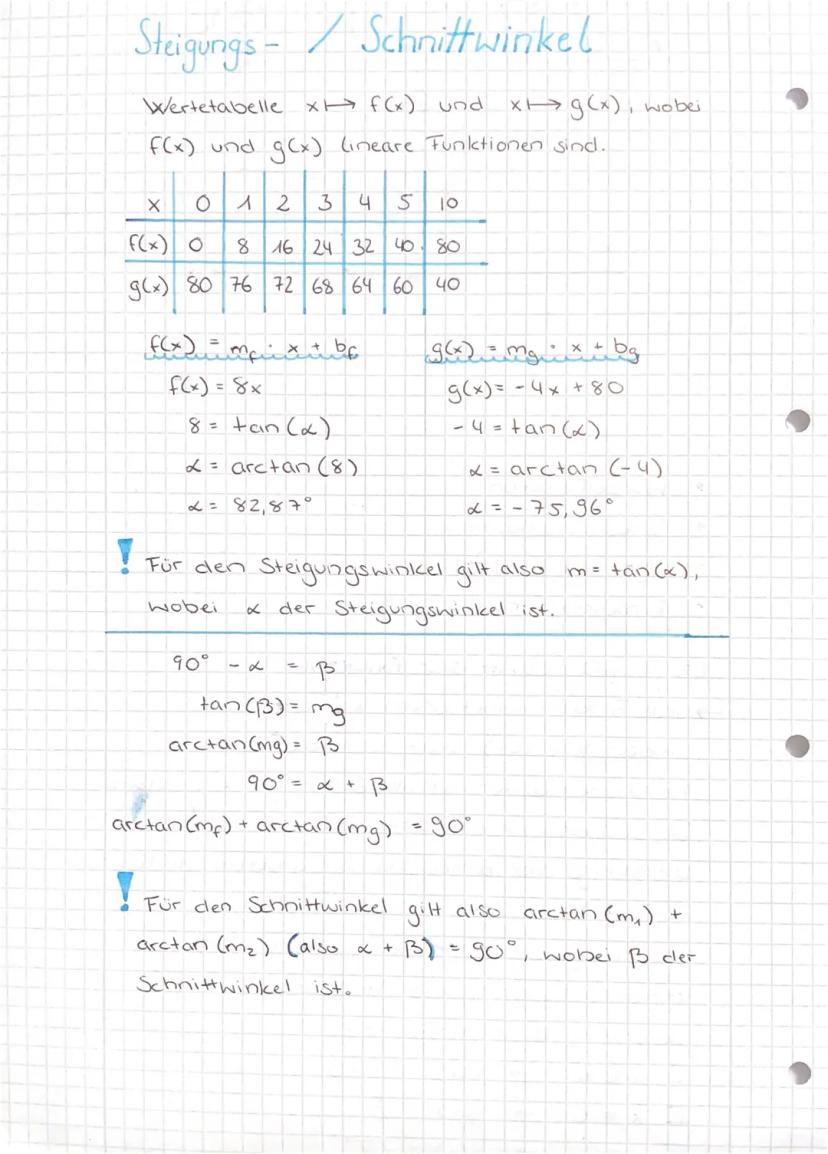 Steigungs- / Schnittwinkel
Wertetabelle x ↦ f(x) und x ↦ g(x), wobei
f(x) und g(x) lineare Funktionen sind.
x 0 1 2 3 4 5 10
f(x) 0 8 16 24 32 40 80
g(x) 80 76 72 68 64 60 40
f(x) = mf · x + bf g(x) = mg · x + bg
f(x) = 8x g(x) = -4x + 80
8 = tan(α) -4 = tan(α)
α = arctan(8) α = arctan(-4)
α = 82,87° α = -75,96°
! Für den Steigungswinkel gilt also m = tan(α),
wobei α der Steigungswinkel ist.
90° - α = β
tan(β) = mg
arctan(mg) = β
90° = α + β
arctan(mf) + arctan(mg) = 90°
! Für den Schnittwinkel gilt also arctan(m₁) +
arctan(m₂) (also α + β) = 90°, wobei β der
Schnittwinkel ist.